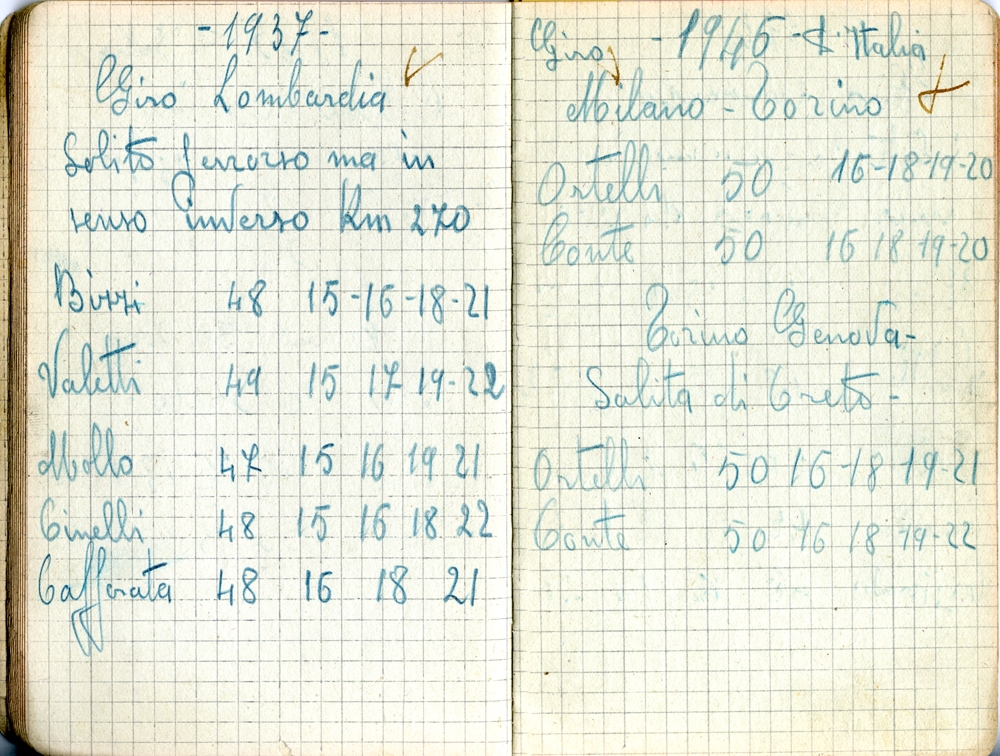 - 1937 -
Giro Lombardia
Solito percorso ma in
senso inverso Km 270
Bizzi 48 15-16-18-21
Valetti 49 15 17 19-22
Mollo 47 15 16 19 21
Cinelli 48 15 16 18 22
Caffarata 48 16 18 21
Giro - 1946 - d'Italia
Milano - Torino
Ortelli 50 16-18-19-20
Conte 50 16 18 19-20
Torino Genova-
Salita di Creto -
Ortelli 50 16-18 19-21
Conte 50 16 18 19-22